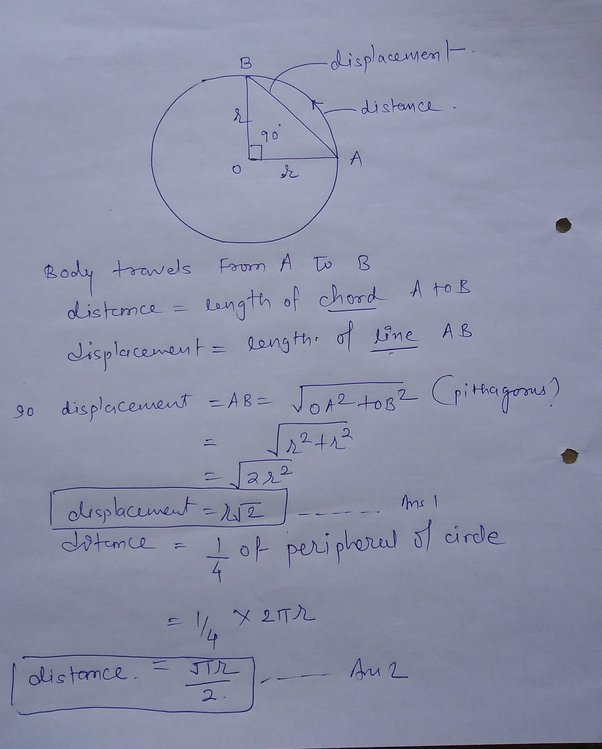 B
displacement.
r
distance.
90°
O
r
A
Body travels From A To B
distance = length of chord A to B
displacement = length. of line AB
so displacement = AB = √OA² + OB² (pithagorus)
= √r² + r²
= √2r²
displacement = r√2 ------ Ans 1
distance = 1/4 of peripheral of circle
= 1/4 × 2πr
distance. = πr/2. ------ Ans 2